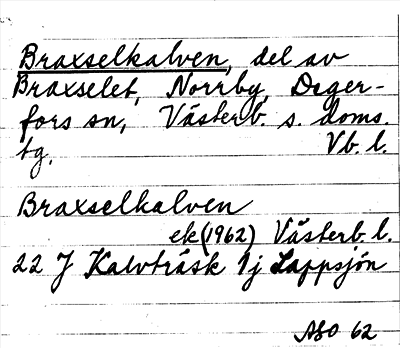 Braxselkalven, del av
Braxselet, Norrby, Deger-
fors sn, Västerb. s. doms.
tg. Vb. l.
Braxselkalven
ek (1962) Västerb. l.
22 J Kalvträsk 1j Lappsjön
ASO 62